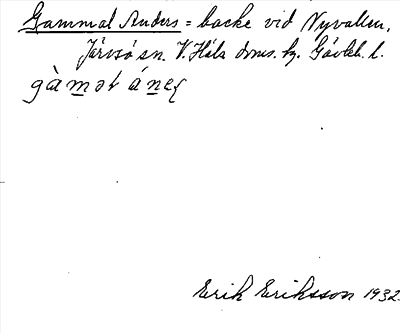 Gammal Anders = backe vid Nyvallen,
Järvsö sn. V. Häls doms. hg. Gävleb. l.
gàmət ánęʂ
Erik Eriksson 1932.